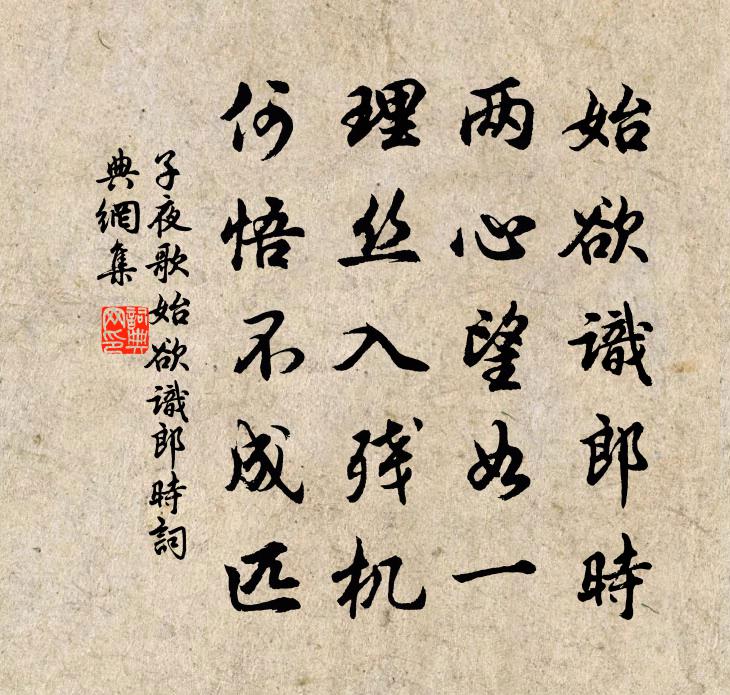 始欲識郎時
两心望如一
理丝入残机
何悟不成匹
子夜歌始欲識郎時詞
典網集
詞典
网印